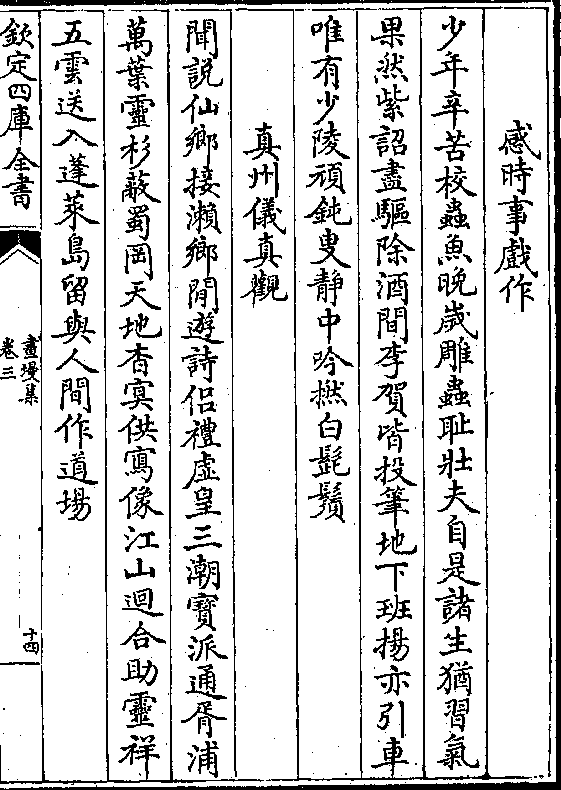 感時事戲作
少年卒苦校蟲魚晚歲雕蟲耻壯夫自是諸生猶習氣
果然紫詔盡驅除酒間李賀皆投筆地下班揚亦引車
唯有少陵頑鈍叟静中吟撚白髭鬚
真州儀真觀
聞説仙鄉接瀨鄉閒遊詩侣禮虛皇三潮寶派通胥浦
萬葉靈杉蔽蜀岡天地杳冥供寫像江山迴合助靈祥
五雲送入蓬萊島留與人間作道場
欽定四庫全書
畫墁集
卷三
十四